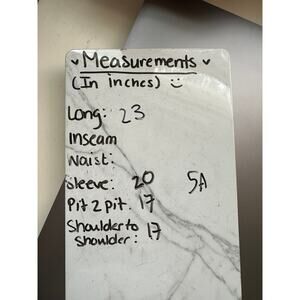 Measurements
(In inches) :)
Long: 23
Inseam
Waist:
Sleeve: 20
5A
Pit 2 pit: 17
Shoulder to
Shoulder: 17